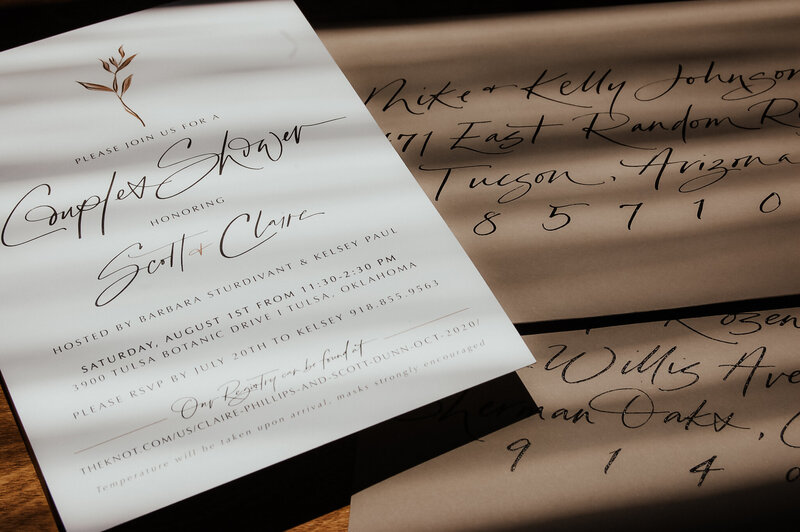 PLEASE JOIN US FOR A
Couples Shower
HONORING
Scott + Claire
HOSTED BY BARBARA STURDIVANT & KELSEY PAUL
SATURDAY, AUGUST 1ST FROM 11:30-2:30 PM
3900 TULSA BOTANIC DRIVE | TULSA, OKLAHOMA
PLEASE RSVP BY JULY 20TH TO KELSEY 918.855.9563
Our Registry can be found at
THEKNOT.COM/US/CLAIRE-PHILLIPS-AND-SCOTT-DUNN-OCT-2020/
Temperature will be taken upon arrival, masks strongly encouraged
Mike + Kelly Johnson
71 East Random R
Tucson, Arizona
8 5 7 1 0
Rozen
Willis Ave
Sherman Oaks,
9 1 4